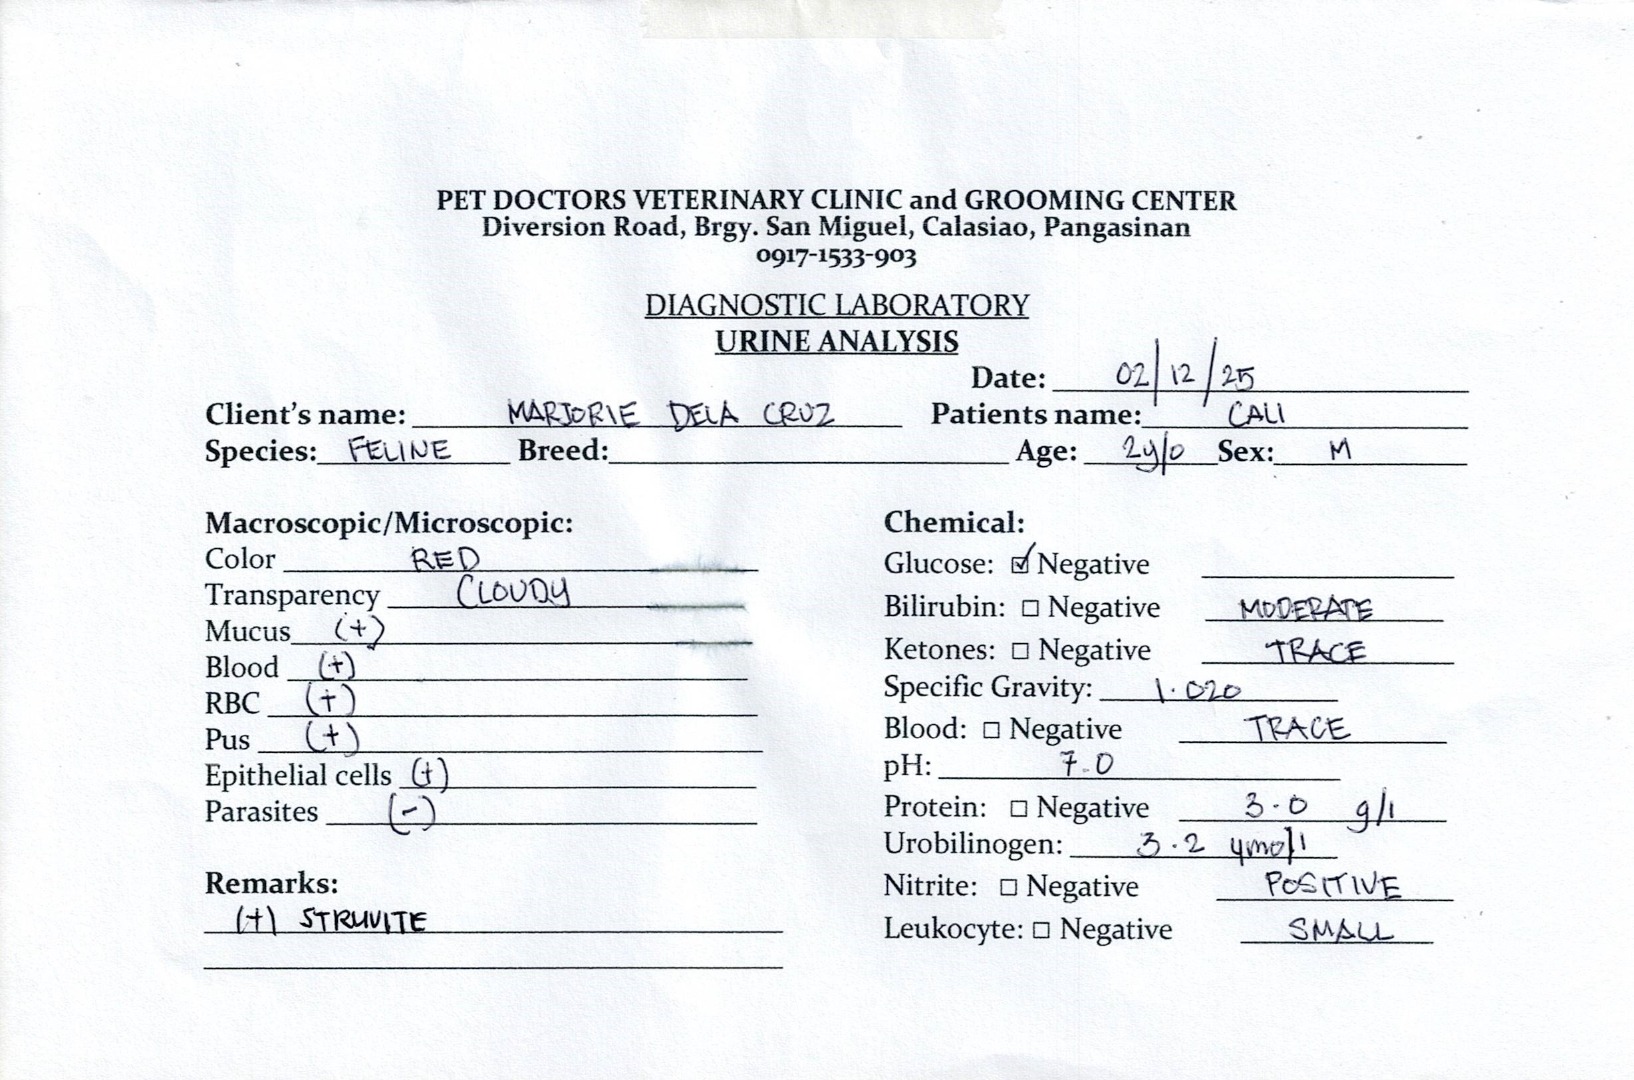 PET DOCTORS VETERINARY CLINIC and GROOMING CENTER
Diversion Road, Brgy. San Miguel, Calasiao, Pangasinan
0917-1533-903
DIAGNOSTIC LABORATORY
URINE ANALYSIS
Date: 02/12/25
Client's name: MARJORIE DELA CRUZ Patients name: CALI
Species: FELINE Breed: Age: 2y/o Sex: M
Macroscopic/Microscopic:
Color RED
Transparency CLOUDY
Mucus (+)
Blood (+)
RBC (+)
Pus (+)
Epithelial cells (+)
Parasites (-)
Remarks:
(+) STRUVITE
Chemical:
Glucose: ☑ Negative
Bilirubin: ☐ Negative MODERATE
Ketones: ☐ Negative TRACE
Specific Gravity: 1.020
Blood: ☐ Negative TRACE
pH: 7.0
Protein: ☐ Negative 3.0 g/l
Urobilinogen: 3.2 μmol/l
Nitrite: ☐ Negative POSITIVE
Leukocyte: ☐ Negative SMALL